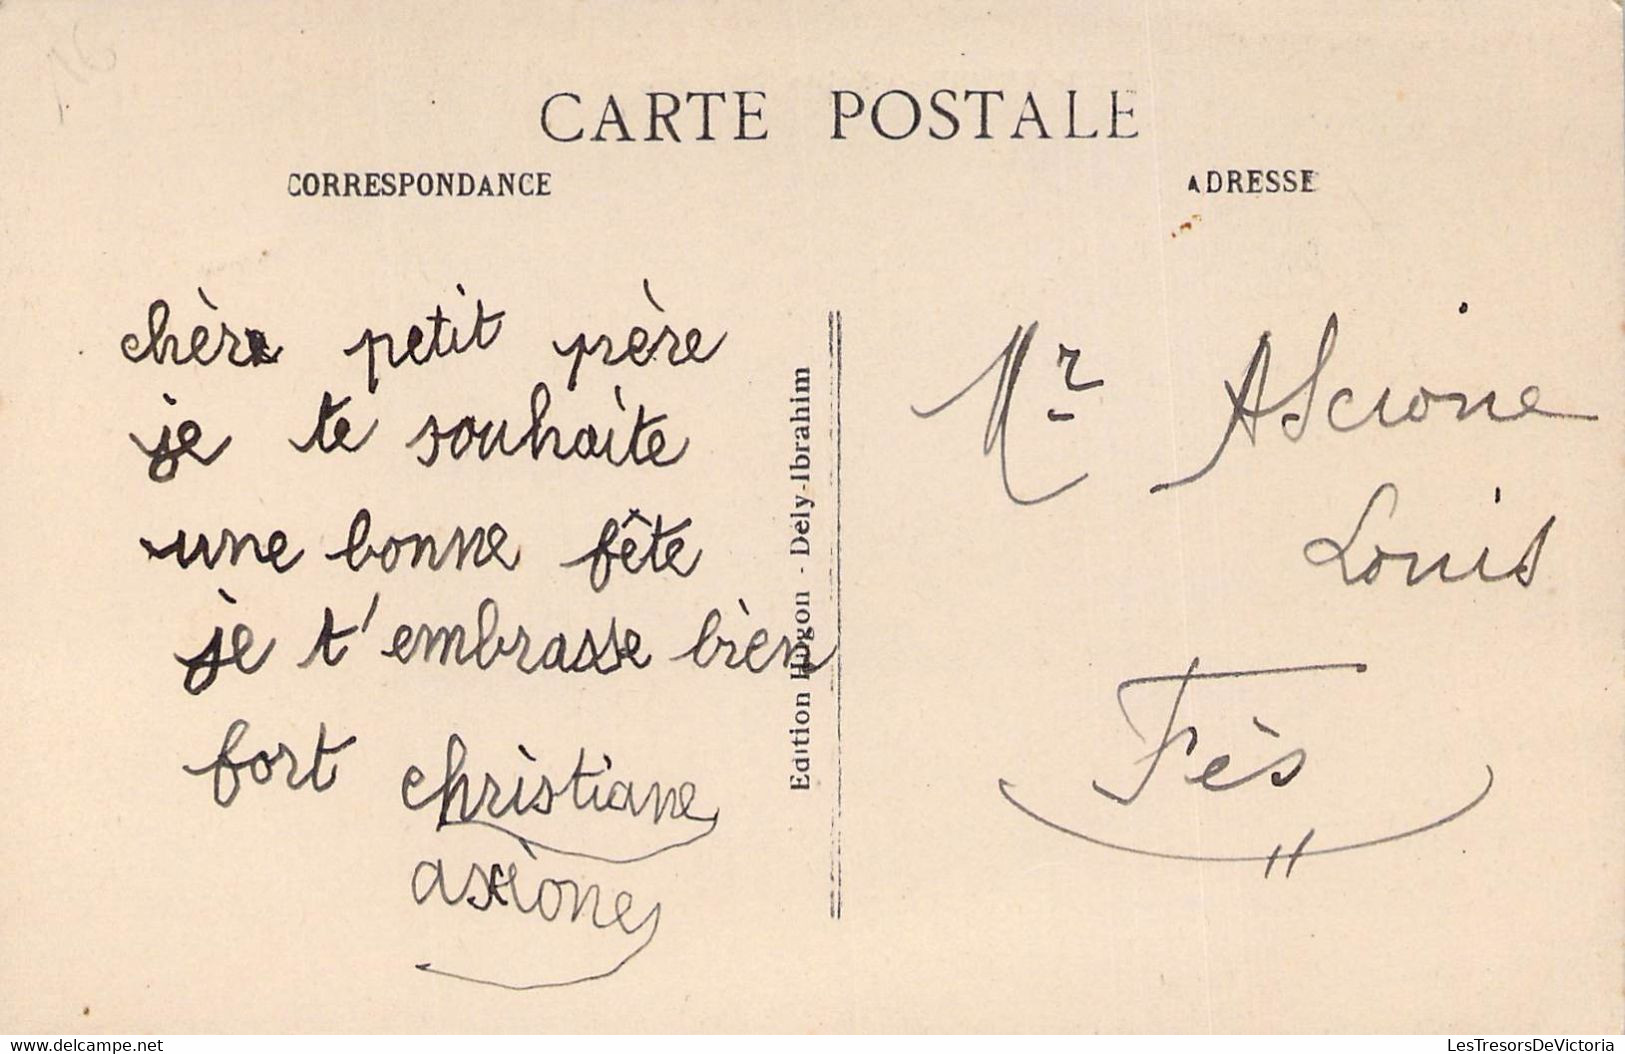 16
CARTE POSTALE
CORRESPONDANCE
ADRESSE
chère petit père
je te souhaite
une bonne fête
je t'embrasse bien
fort christiane
ascione
Edition Hugon - Dély-Ibrahim
Mr Ascione
Louis
Fès
delcampe.net
LesTresorsDeVictoria